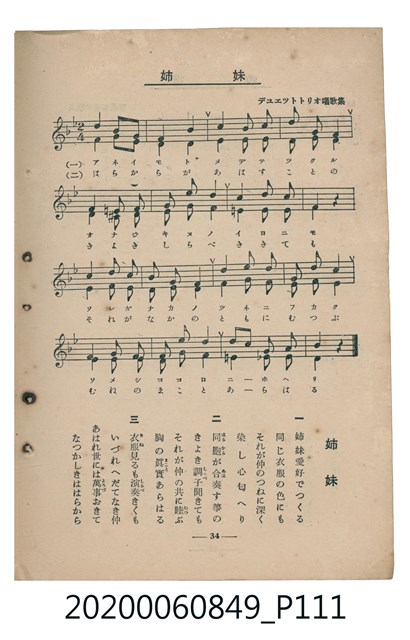 姉妹
デユエツトトリオ唱歌集
(一) アネイモトメデテツクル
(二) はらからがあはすことの
オナジキヌノイロニモ
きよきしらべききても
ソレガナカノツネニフカク
それがなかのともにむつぶ
ソメシココロニーホヘリ
むねのまことあーらはる
姉妹
一 姉妹愛好でつくる
同じ衣服の色にも
それが仲のつねに深く
染し心匂へり
二 同胞が合奏す箏の
きよき調子聞きても
それが仲の共に睦ぶ
胸の眞實あらはる
三 衣服見るも演奏きくも
いづれへだてなき仲
あはれ世には萬事おきて
なつかしきはらから
34
20200060849_P111